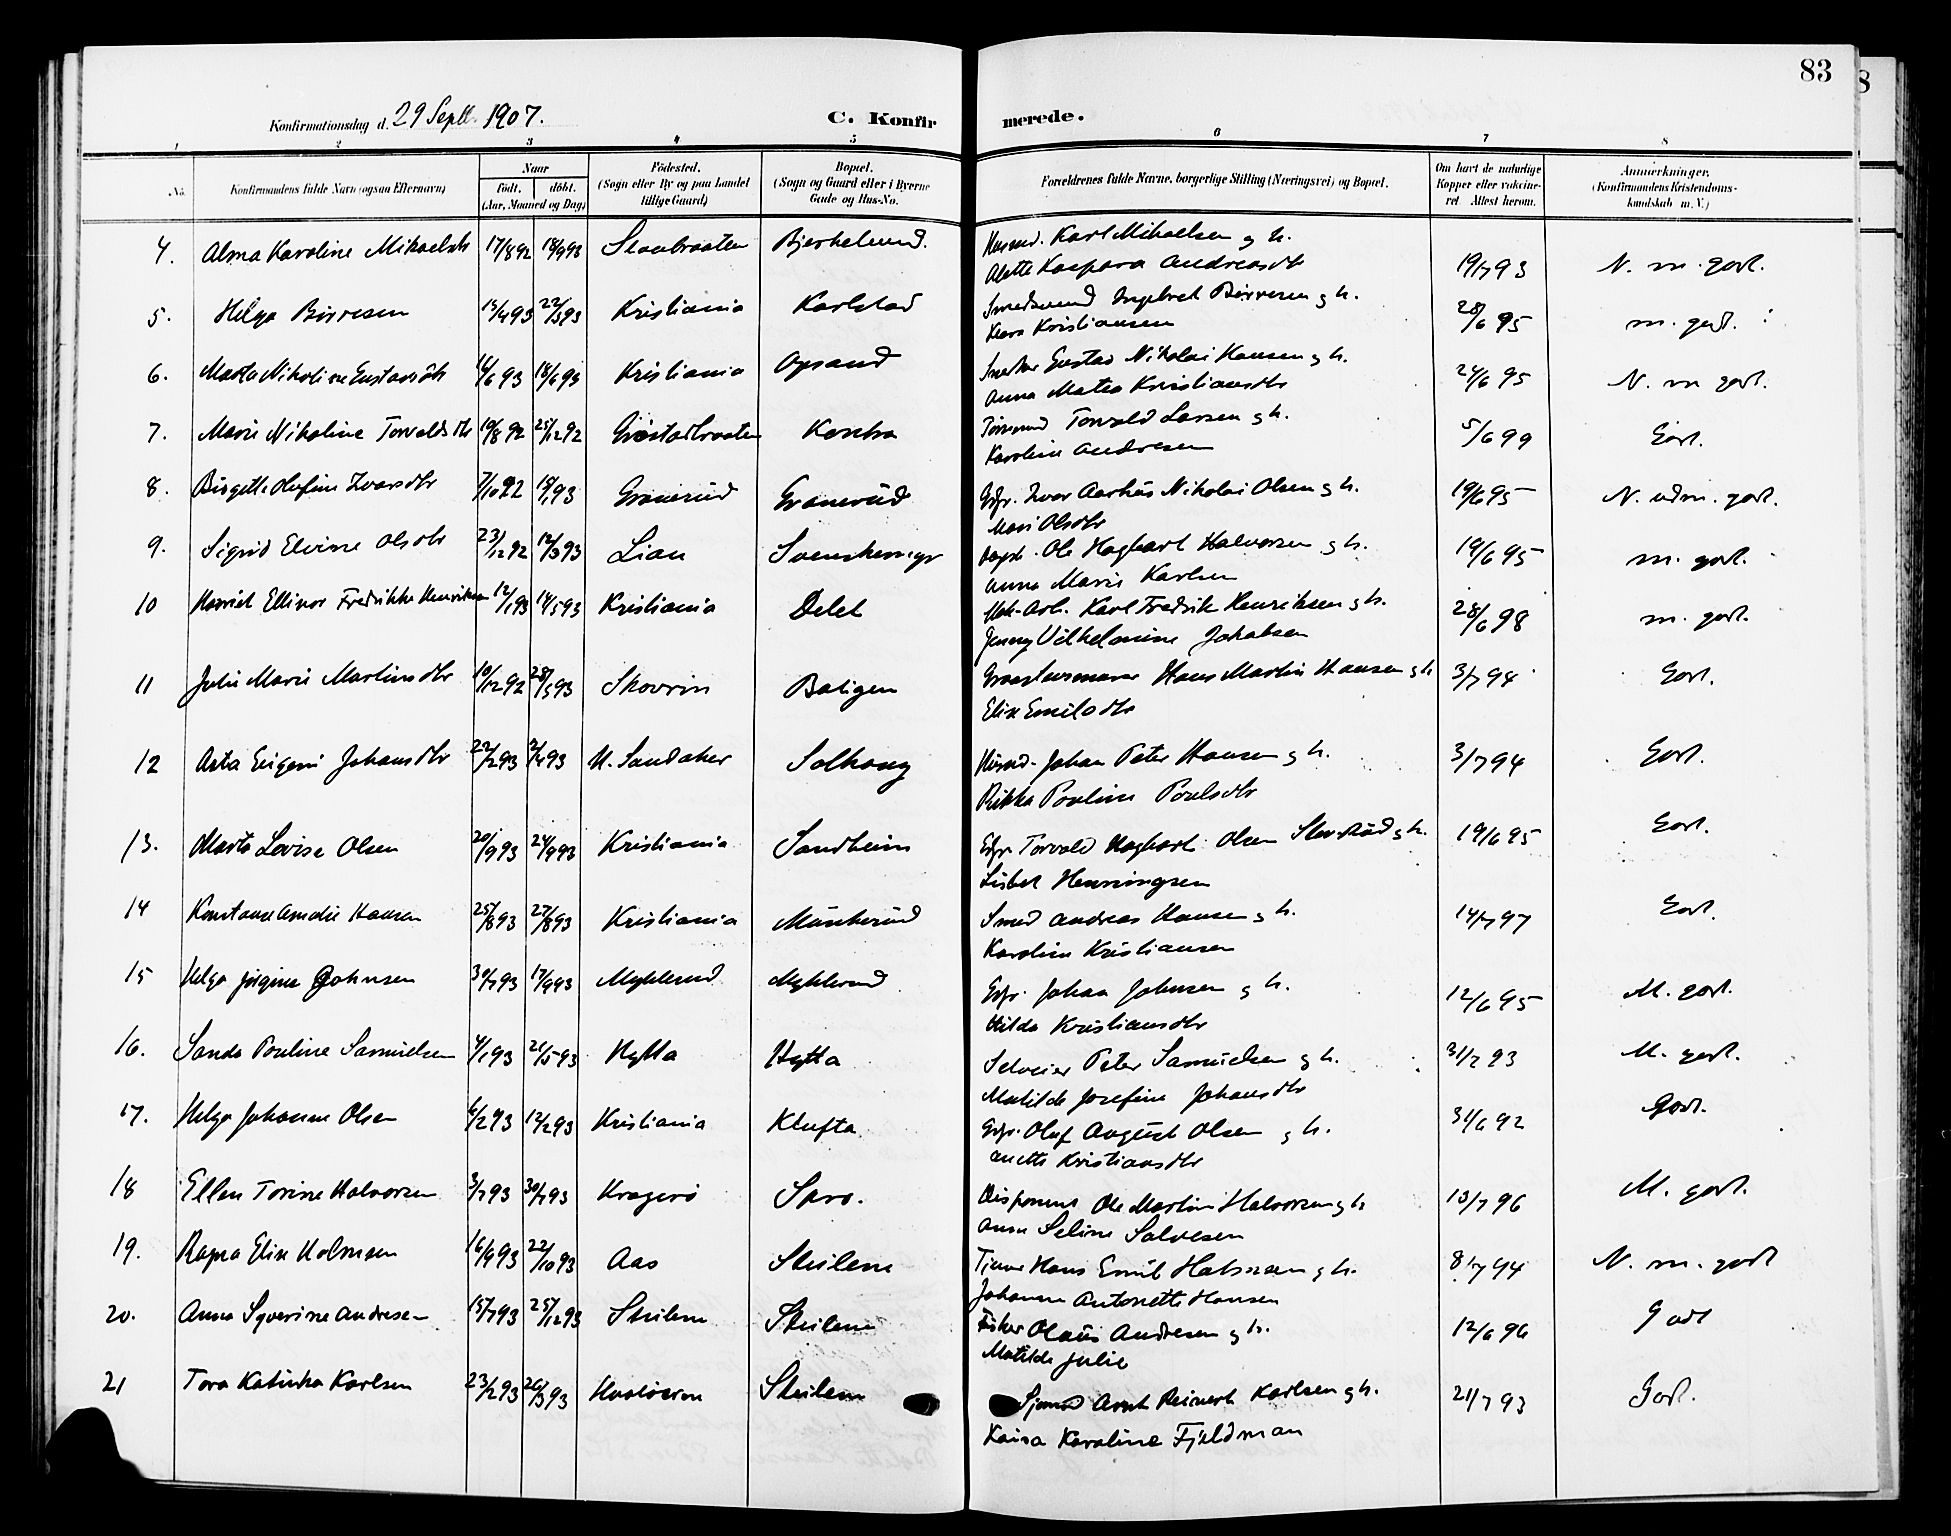 83
Konfirmationsdag d. 29 Septb. 1907.
C. Konfirmerede.
1 2 3 4 5 6 7 8
No. Konfirmandens fulde Navn (ogsaa Efternavn) Naar födt. döbt. (Aar, Maaned og Dag) Födested. (Sogn eller By og paa Landet tillige Gaard) Bopæl. (Sogn og Gaard eller i Byerne Gade og Hus-No. Forældrenes fulde Navne, borgerlige Stilling (Næringsvei) og Bopæl. Om havt de naturlige Kopper eller vakcineret Attest herom. Anmærkninger. (Konfirmandens Kristendomskundskab m. V.)
4. Alma Karoline Mikaelsdtr 17/8 92 18/9 98 Bjerkelund. Karl Mikaelsen g h. 19/7 93 N. m. godt.
Alette Kaspara Andreasdtr
5. Helga Börresen 15/4 93 22/5 93 Kristiania Karlstad Ingebret Börresen g h. 28/6 95 m. godt.
Kristiansen
6. Marta Nikoline Gustavsdtr 11/6 93 18/6 93 Kristiania Opsand Gustav Nikolai Hansen g h. 24/6 95 N. m godt.
Anna Matea Kristiansdtr
7. Marie Nikoline Torvaldsdtr 19/8 92 25/12 92 Torvald Larsen g h. 5/6 99 Godt.
Karoline Andresen
8. Birgitte Olufine Ivarsdtr 7/10 92 18/1 93 Granerud Granerud Gbr. Ivar Aarhus Nikolai Olsen g h. 19/6 95 N. udm. godt.
Mari Olsdtr
9. Sigrid Elvine Olsdtr 23/12 92 12/3 93 Lian Ole Hagbart Halvorsen g h. 19/6 95 m. godt.
Anna Marie Karlsen
10 Harriet Ellinor Fredrikke Henriksen 12/1 93 14/5 93 Kristiania Delet Karl Fredrik Henriksen g h. 28/6 98 m. godt.
Jenny Vilhelmine Jakobsen
11 Julie Marie Martinsdtr 10/12 92 28/5 93 Skovrin Boligen Hans Martin Hansen g h 3/7 94 Godt.
Elise Emilsdtr
12 Asta Eugeni Johansdtr 22/2 93 2/4 93 N. Sandaker Solhaug Johan Peter Hansen g h. 3/7 94 Godt.
Rikka Pauline Paulsdtr
13. Marta Lovise Olsen 20/9 93 24/9 93 Kristiania Sandheim Torvald Hagbart Olsen g h. 19/6 95 Godt.
Lisbet Henningsen
14 Konstanse Amalie Hansen 25/8 93 27/8 93 Kristiania Munkerud Smed Andreas Hansen g h. 14/7 97 Godt.
Karoline Kristiansen
15 Helga Jörgine Johnsen 30/7 93 17/9 93 Myklerud Myklerud Gbr. Johan Johnsen g h. 12/6 95 M. godt.
Hilda Kristiansdtr
16. Sanda Pauline Samuelsen 4/1 93 21/5 93 Hytta Hytta Selveier Peter Samuelsen g h. 31/7 93 M. godt.
Matilde Josefine Johansdtr
17. Helga Johanne Olsen 6/2 93 12/2 93 Kristiania Klufta Gbr. Oluf August Olsen g h. 31/6 92 Godt.
Anette Kristiansdtr
18 Ellen Torine Halvorsen 3/7 93 30/7 93 Kragerö Skro. Disponent Ole Martin Halvorsen g h 13/7 96 M. godt.
Anne Seline Salvesen
19. Ragna Elise Holmsen 16/9 93 22/10 93 Aas Steilene Hans Emil Holmsen g h. 8/7 94 N. m. godt
Johanne Antonette Hansen
20. Anna Syverine Andresen 15/7 93 25/12 93 Steilene Steilene Fisker Olaus Andresen g h. 12/6 96 Godt
Matilde Julie
21 Tora Katinka Karlsen 23/2 93 26/3 93 Steilene Sjömd Arnt Reinert Karlsen g h. 21/7 93 Godt.
Kaisa Karoline Fjeldman